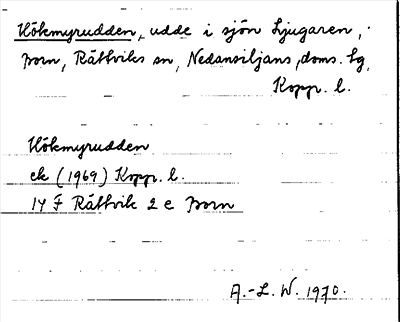 Hökmyrudden, udde i sjön Ljugaren,
Born, Rättviks sn, Nedansiljans doms. lg,
Kopp. l.
Hökmyrudden
ek (1969) Kopp. l.
14 F Rättvik 2 e Born
A.-L. W. 1970.